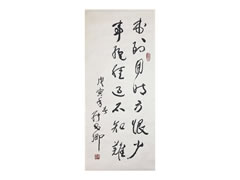 书到用时方恨少
事非经过不知難
戊寅年